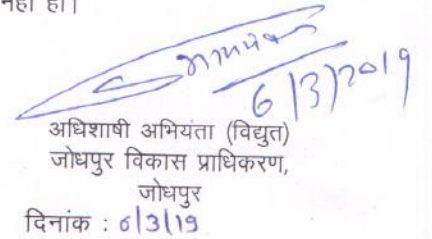 नहीं हो।
6/3/2019
अधिशाषी अभियंता (विद्युत)
जोधपुर विकास प्राधिकरण,
जोधपुर
दिनांक : 6/3/19